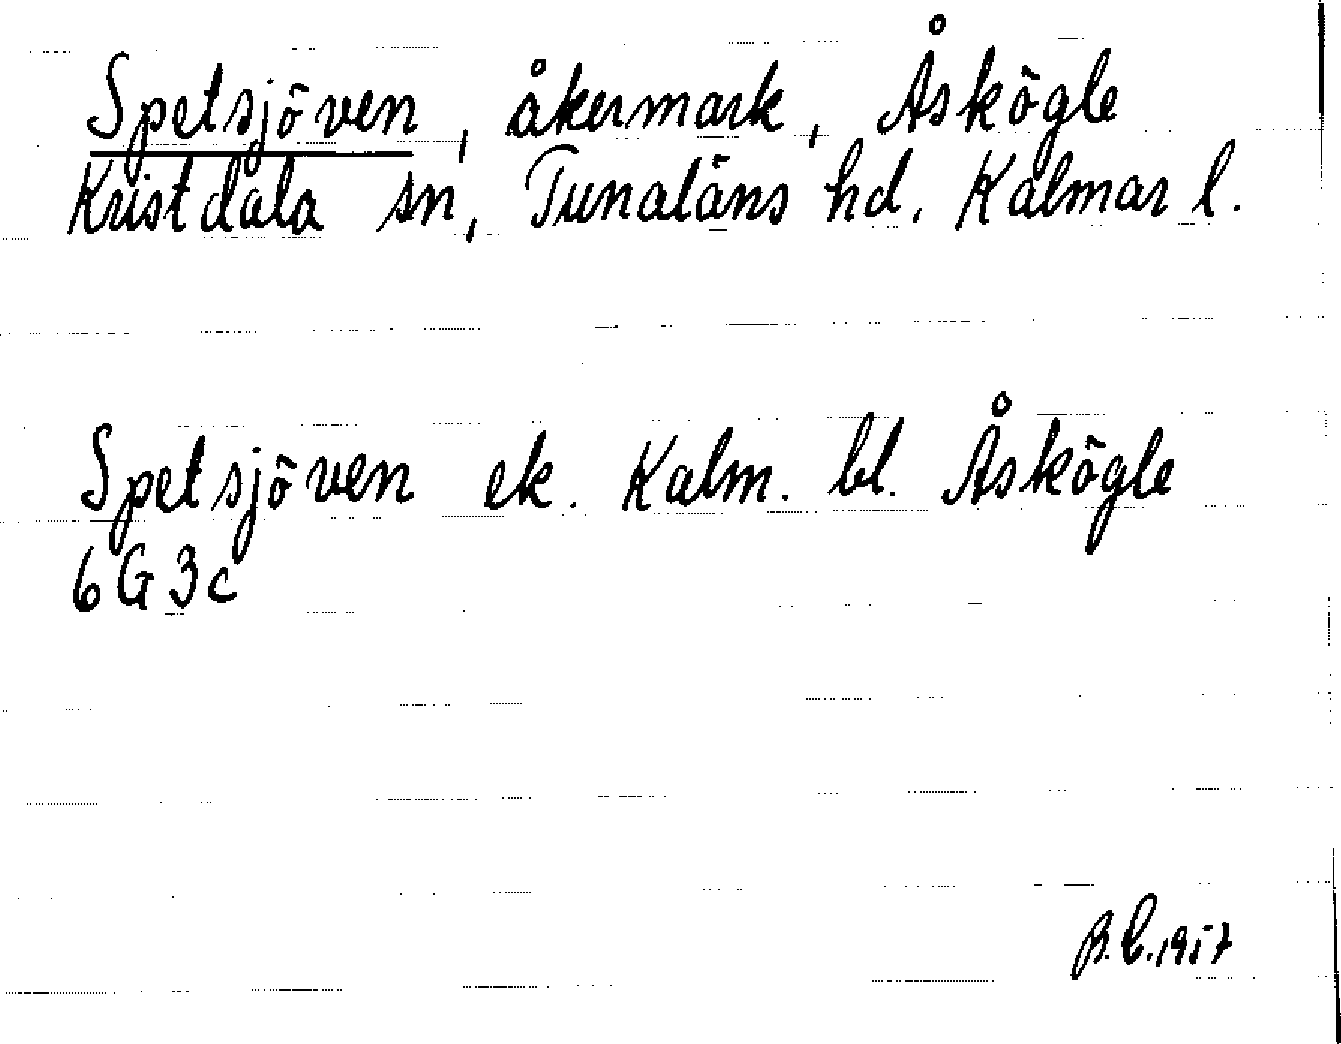 Spetsjöven, åkermark, Åskögle
Kristdala sn, Tunaläns hd. Kalmar l.
Spetsjöven ek. Kalm. bl. Åskögle
6G3c
B.C. 1957